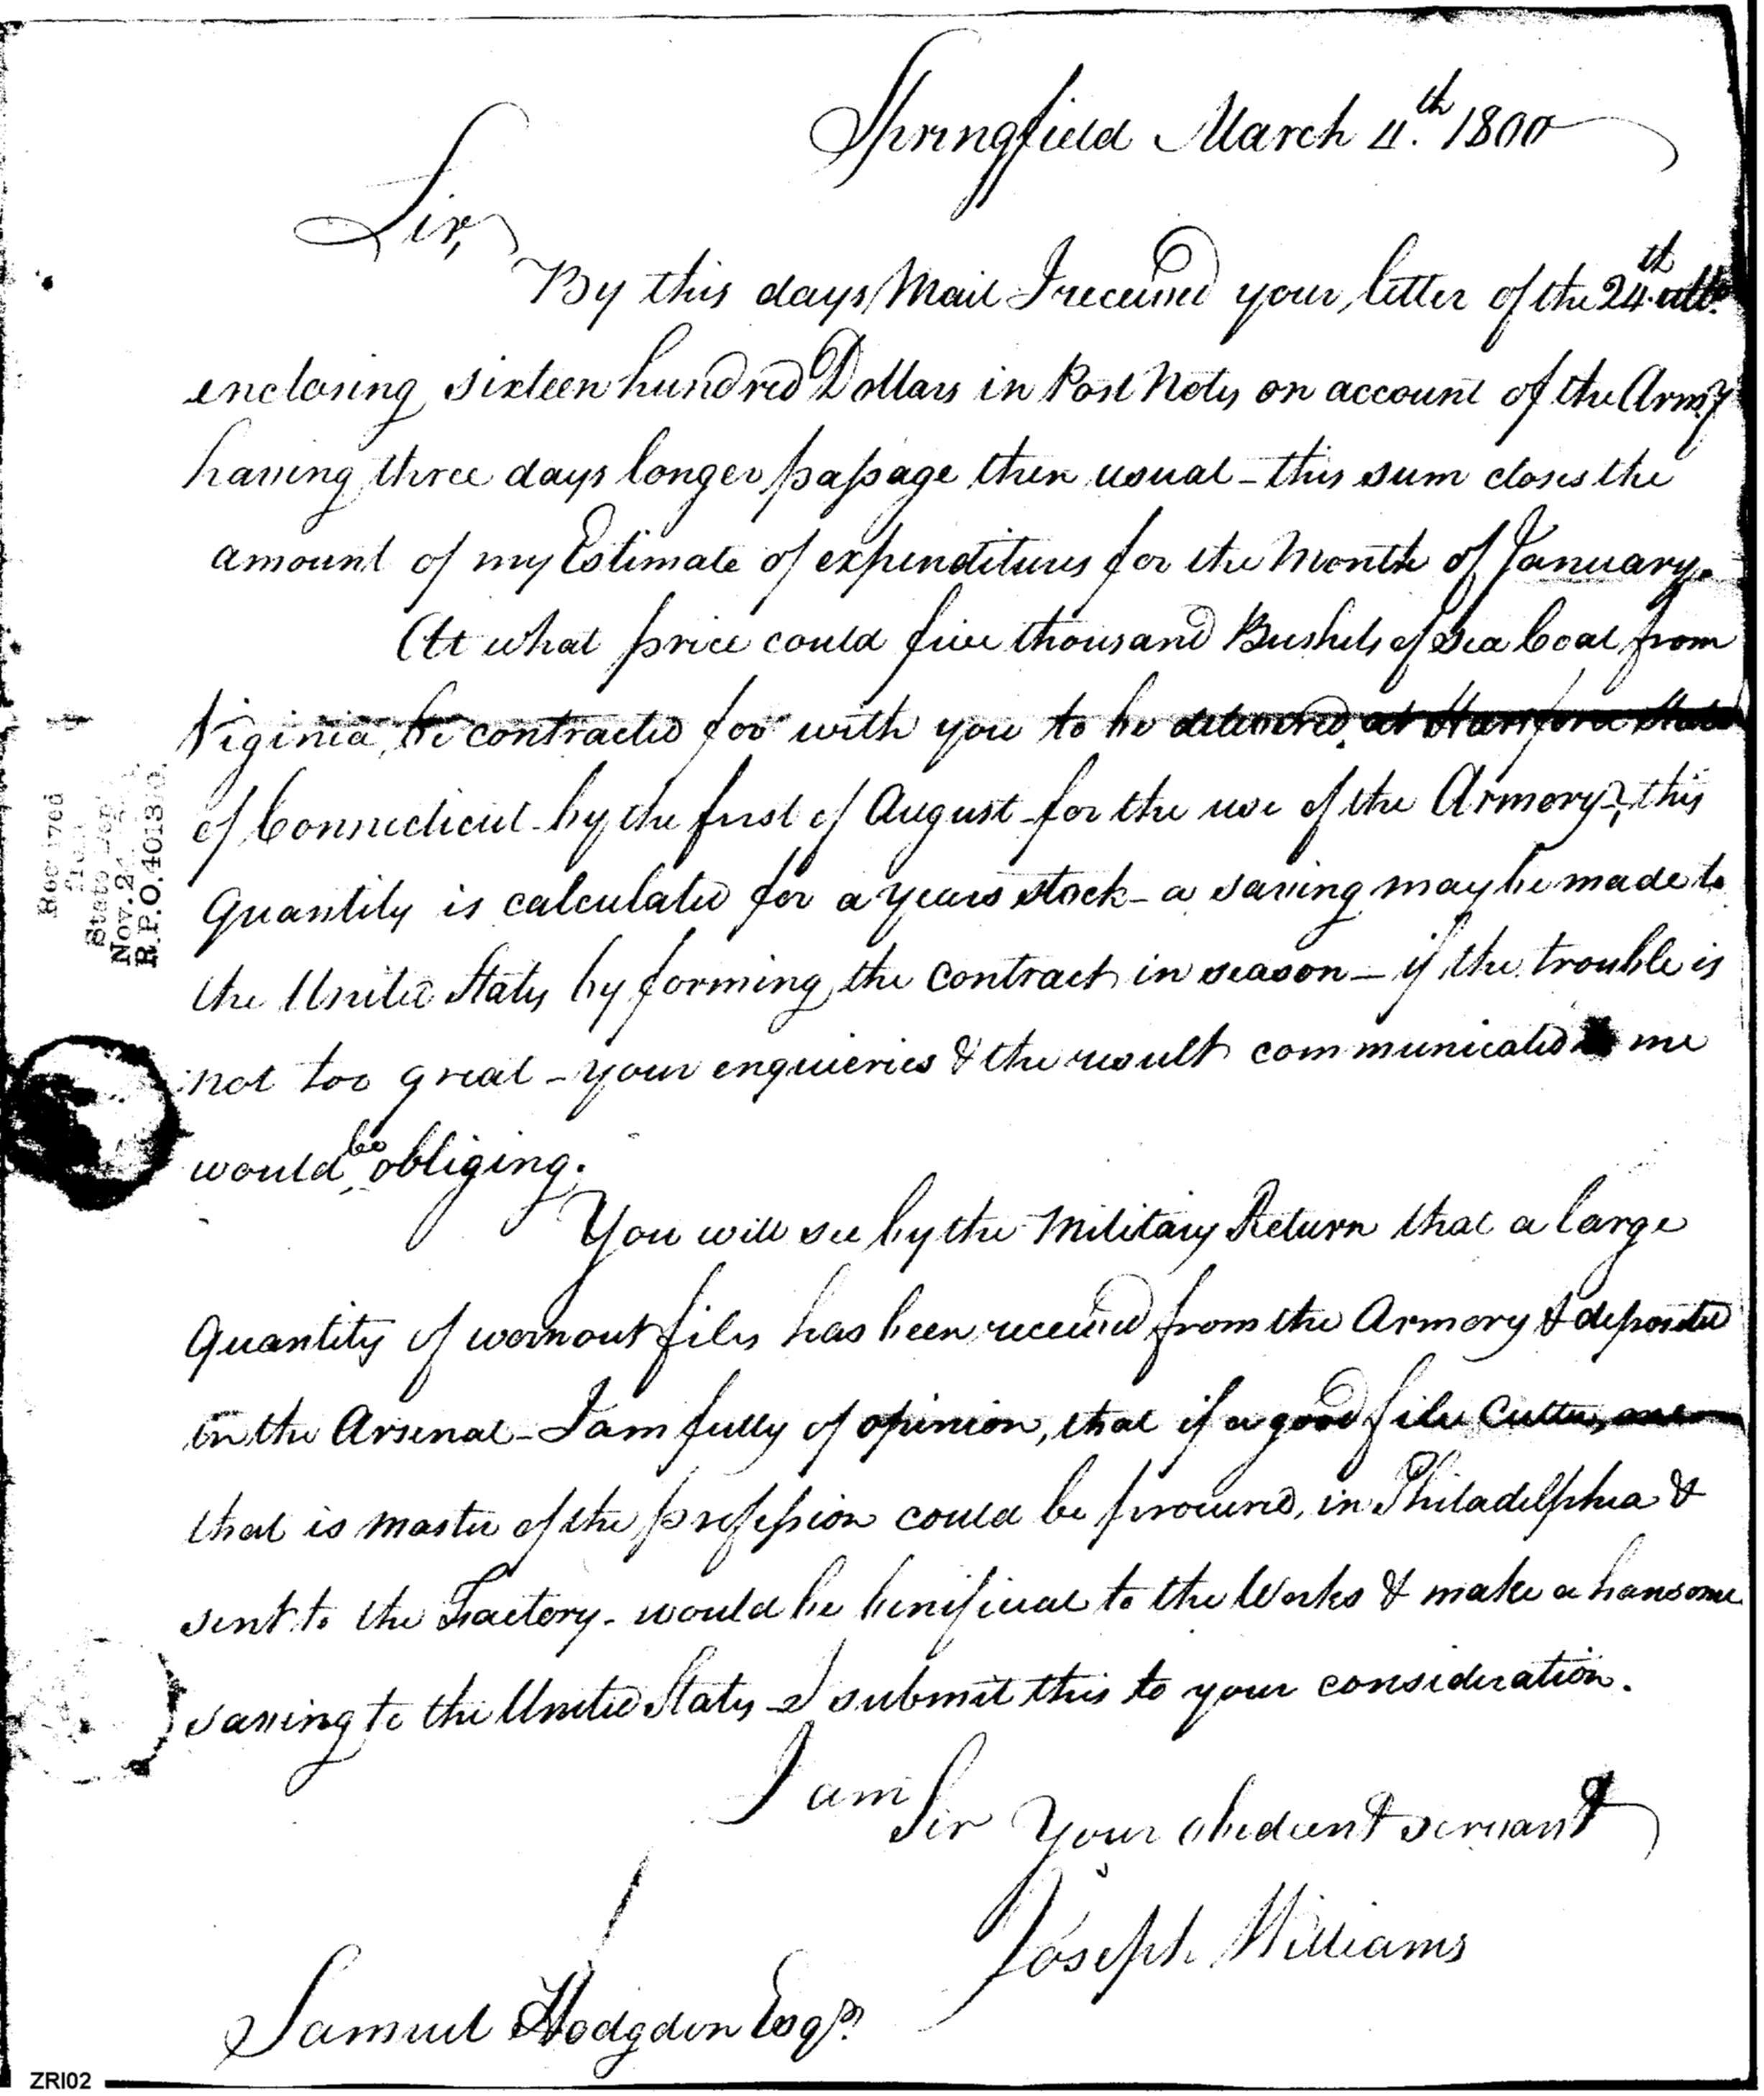 Springfield March 4.th 1800
Sir,
By this days Mail I received your letter of the 24.th ulto.
enclosing sixteen hundred Dollars in Post Notes on account of the Armoy
having three days longer passage then usual - this sum closes the
amount of my Estimate of expenditures for the Month of January.
At what price could five thousand Bushels of Sea Coal from
Virginia, be contracted for with you to be delivered at Hartford State
of Connecticut by the first of August for the use of the Armory?, this
Quantity is calculated for a years stock - a saving may be made to
the United States by forming the contract in season - if the trouble is
not too great - your enquieries & the result communicated me
would be obliging.
You will see by the Military Return that a large
Quantity of wornout files has been received from the Armory & deposited
in the Arsenal - I am fully of opinion, that if a good file Cutter, one
that is master of the profession could be procured, in Philadelphia &
sent to the Factory - would be benificial to the Works & make a hansome
saving to the United States - I submit this to your consideration.
I am
Sir Your obedient servant
Joseph Williams
Samuel Hodgdon Esqr.
Received
from
State Dep'
Nov. 2
R.P.O. 4013
ZRI02